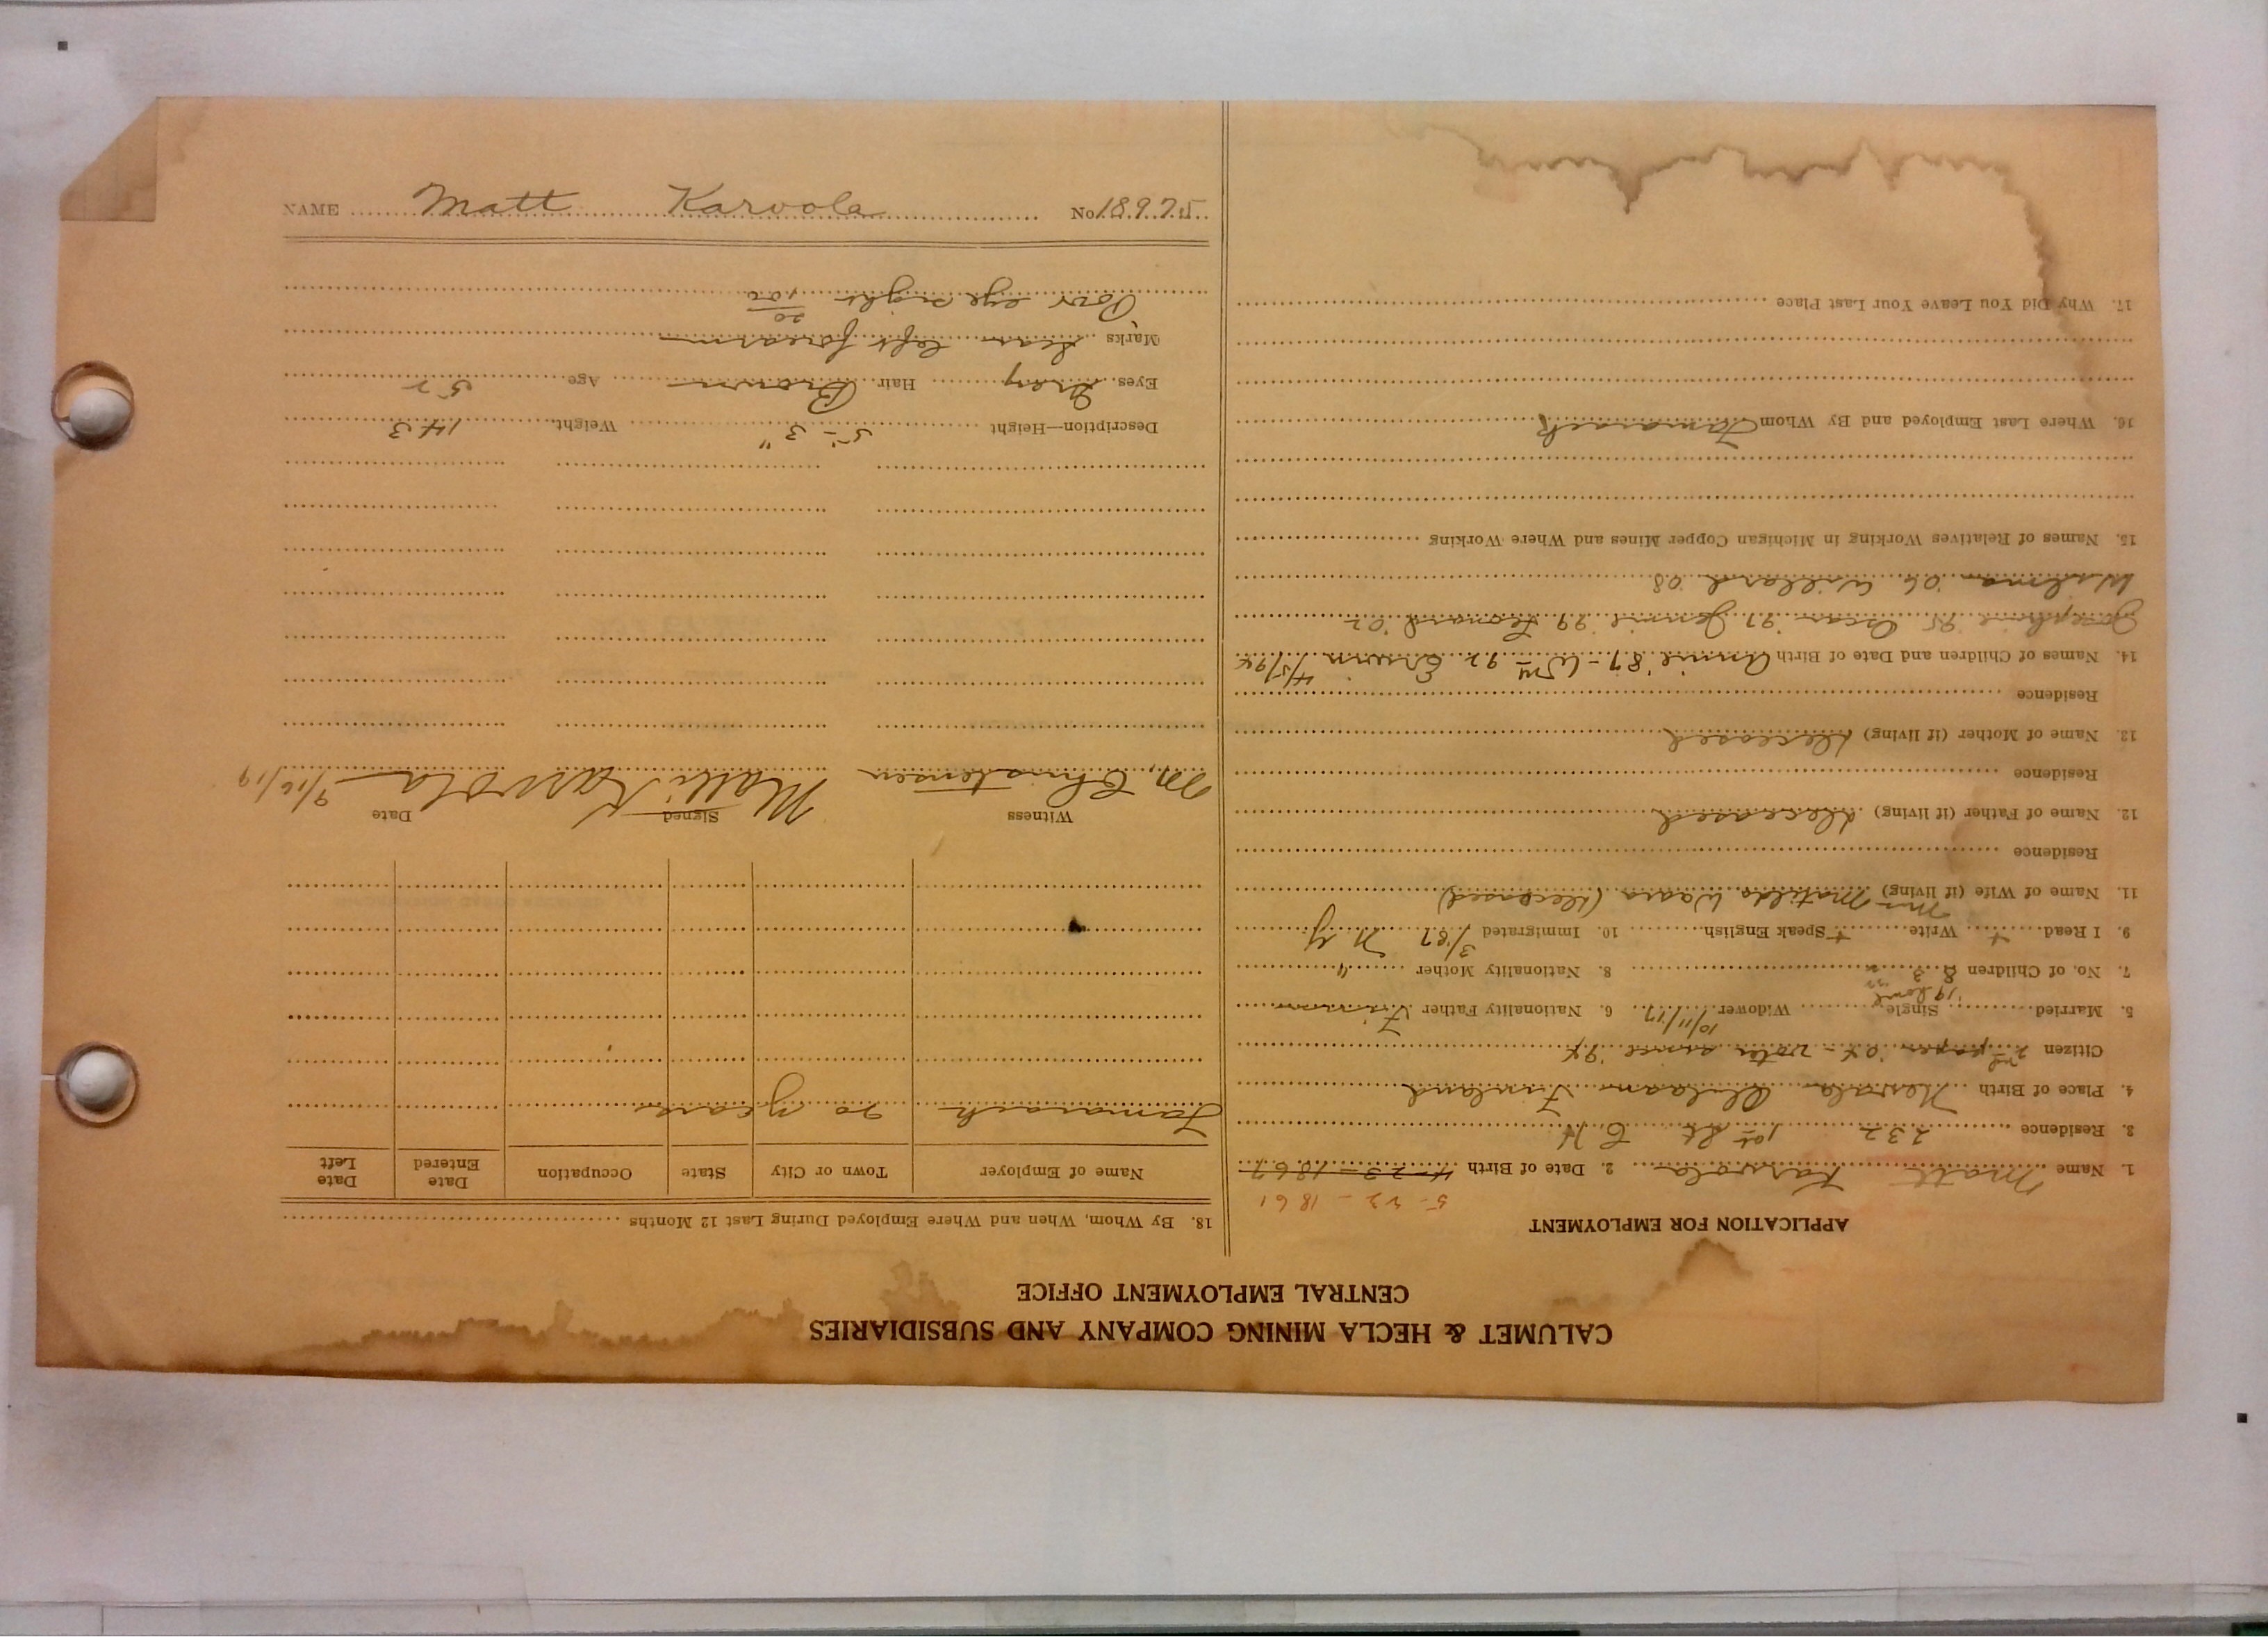 CALUMET & HECLA MINING COMPANY AND SUBSIDIARIES
CENTRAL EMPLOYMENT OFFICE
APPLICATION FOR EMPLOYMENT
5-23-1861
1. Name Matt Karvola 2. Date of Birth 4-23-1867
3. Residence 232 1st St
4. Place of Birth Finland
Citizen 2nd paper 04 - voter since 94
5. Married Single Widower 10/11/17 6. Nationality Father Finn
'19 home
7. No. of Children 8 3 8. Nationality Mother "
9. I Read + Write + Speak English 10. Immigrated 3/87 N Y
11. Name of Wife (if living) Mrs Matilda Waara (deceased)
Residence
12. Name of Father (if living) deceased
Residence
13. Name of Mother (if living) deceased
Residence
14. Names of Children and Date of Birth Annie '87 - Wm 92 4/5/94
Josephine 95 Oscar '97 Jennie 99 Leonard '02
Wilma 06 Willard 08
15. Names of Relatives Working in Michigan Copper Mines and Where Working
16. Where Last Employed and By Whom Tamarack
17. Why Did You Leave Your Last Place
18. By Whom, When and Where Employed During Last 12 Months
Name of Employer Town or City State Occupation Date Entered Date Left
Tamarack 20 years
Witness Signed Date
M. Christensen Matti Karvola 9/16/19
Description—Height 5'-3" Weight 143
Eyes Gray Hair Brown Age 52
Marks Scar left forearm
Poor eye sight 20/100
NAME Matt Karvola No 18975